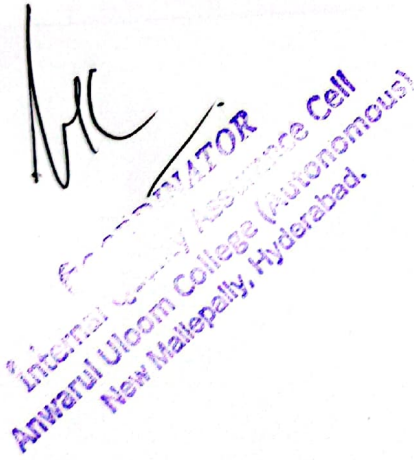 CO-ORDINATOR
Internal Quality Assurance Cell
Anwarul Uloom College (Autonomous)
New Mallepally, Hyderabad.